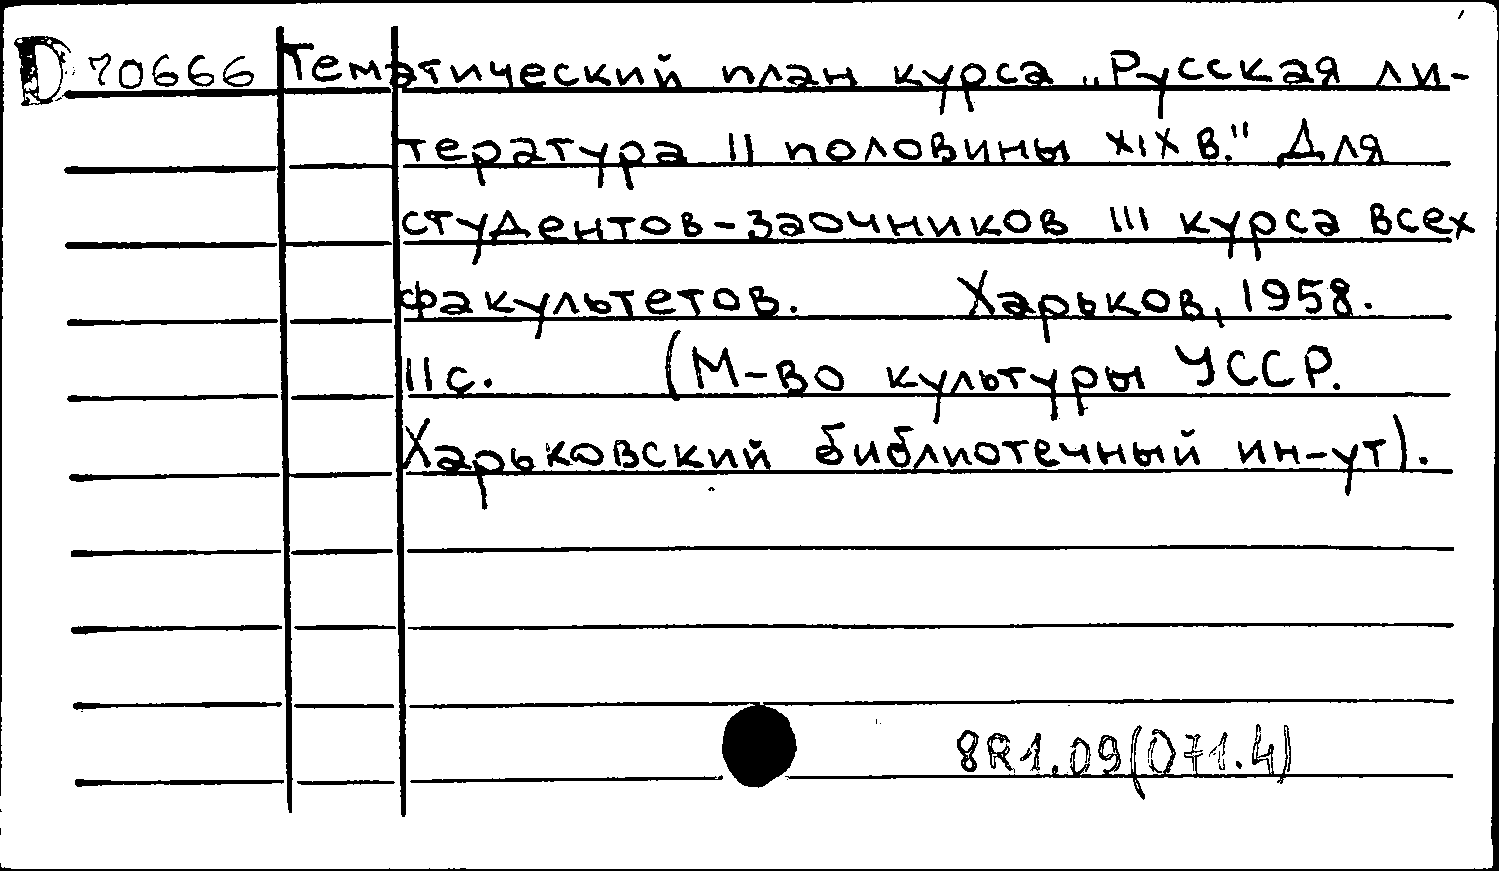 D 70666 Тематический план курса „Русская ли-
тература II половины XIX в." Для
студентов-заочников III курса всех
факультетов. Харьков, 1958.
11 с. (М-во культуры УССР.
Харьковский библиотечный ин-ут).
8R1.09(071.4)